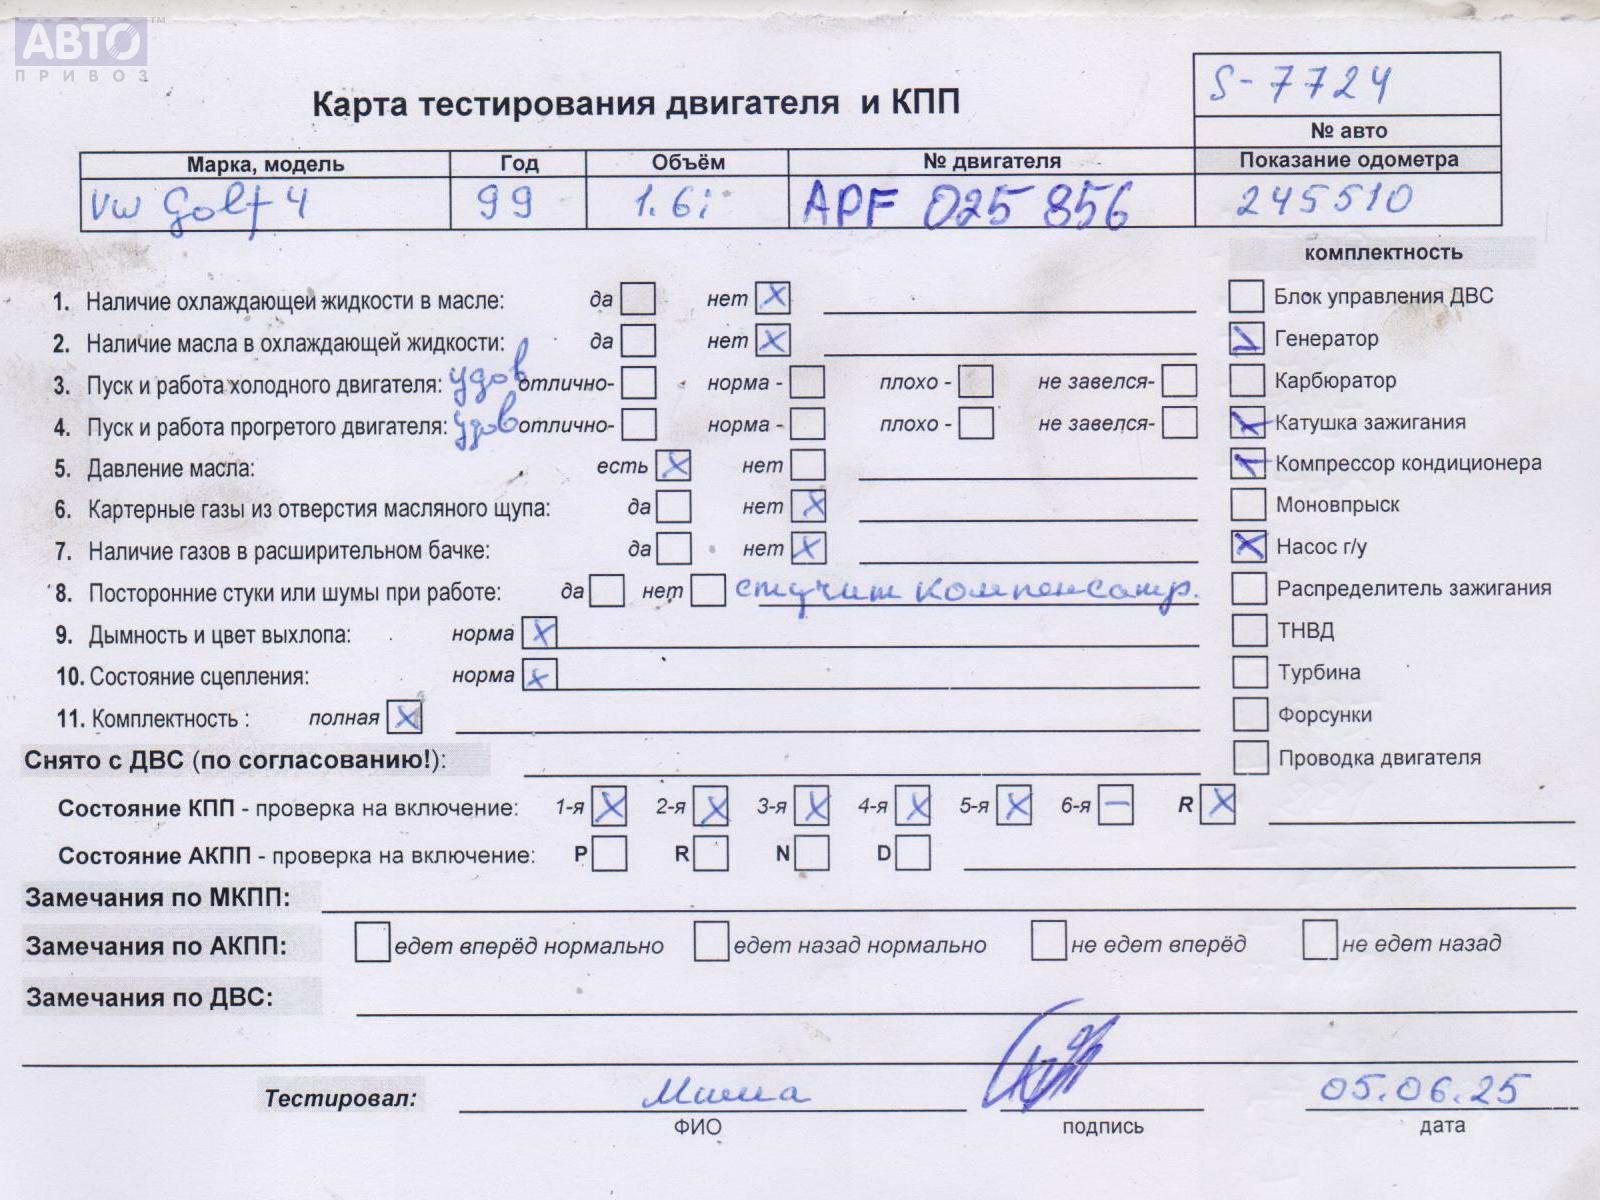 АВТО™
ПРИВОЗ
S-7724
Карта тестирования двигателя и КПП
№ авто
Марка, модель Год Объём № двигателя Показание одометра
VW Golf 4 99 1.6i APF 025 856 245510
комплектность
1. Наличие охлаждающей жидкости в масле: да нет X Блок управления ДВС
2. Наличие масла в охлаждающей жидкости: да нет X Генератор
3. Пуск и работа холодного двигателя: удов отлично- норма - плохо - не завелся- Карбюратор
4. Пуск и работа прогретого двигателя: удов отлично- норма - плохо - не завелся- Катушка зажигания
5. Давление масла: есть X нет Компрессор кондиционера
6. Картерные газы из отверстия масляного щупа: да нет X Моновпрыск
7. Наличие газов в расширительном бачке: да нет X X Насос г/у
8. Посторонние стуки или шумы при работе: да нет стучит компенсатр. Распределитель зажигания
9. Дымность и цвет выхлопа: норма X ТНВД
10. Состояние сцепления: норма X Турбина
11. Комплектность : полная X Форсунки
Снято с ДВС (по согласованию!): Проводка двигателя
Состояние КПП - проверка на включение: 1-я X 2-я X 3-я X 4-я X 5-я X 6-я – R X
Состояние АКПП - проверка на включение: P R N D
Замечания по МКПП:
Замечания по АКПП: едет вперёд нормально едет назад нормально не едет вперёд не едет назад
Замечания по ДВС:
Тестировал: Миша 05.06.25
ФИО подпись дата